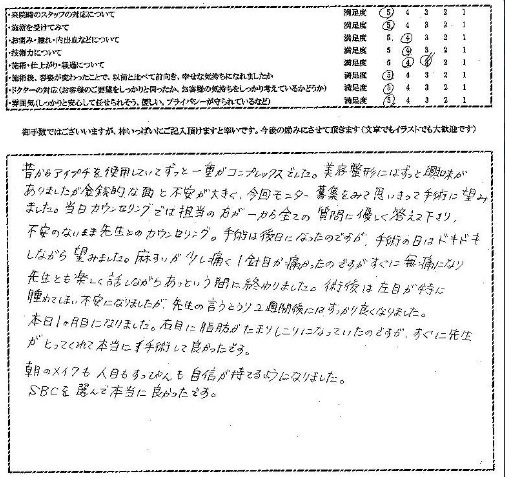 ・来院時のスタッフの対応について 満足度 5 4 3 2 1
・施術を受けてみて 満足度 5 4 3 2 1
・お痛み・腫れ・内出血などについて 満足度 5 4 3 2 1
・技術力について 満足度 5 4 3 2 1
・施術・仕上がり・経過について 満足度 5 4 3 2 1
・施術後、容姿が変わったことで、以前と比べて前向き、幸せな気持ちになれましたか 満足度 5 4 3 2 1
・ドクターの対応(お客様のご要望をしっかりと伺ったか、お客様の気持ちをしっかり考えているかどうか) 満足度 5 4 3 2 1
・雰囲気(しっかりと安心して任せられそう、優しい、プライバシーが守られているなど) 満足度 5 4 3 2 1
御手数ではございいますが、枠いっぱいにご記入頂けますと幸いです。今後の励みにさせて頂きます(文章でもイラストでも大歓迎です)
昔からアイプチを使用していてずっと一重がコンプレックスでした。美容整形にはずっと興味が
ありましたが金銭的な面と不安が大きく、今回モニター募集をみて思いきって手術に望み
ました。当日カウンセリングでは担当の方が一から全ての質問に優しく答えて下さり、
不安のないまま先生とのカウンセリング。手術は後日になったのですが、手術の日はドキドキ
しながら望みました。麻すいが少し痛く1針目か痛かったのですがすぐに無痛になり
先生とも楽しく話しながらあっという間に終わりました。術後は左目が特に
腫れてしまい不安になりましたが、先生の言うとうり2週間後にはすっかり良くなりました。
本日1ヶ月目になりました。右目に脂肪がたまりしこりになっていたのですが、すぐに先生
がとってくれて本当に手術して良かったです。
朝のメイクも人目もすっぴんも自信が持てるようになりました。
SBCを選んで本当に良かったです。